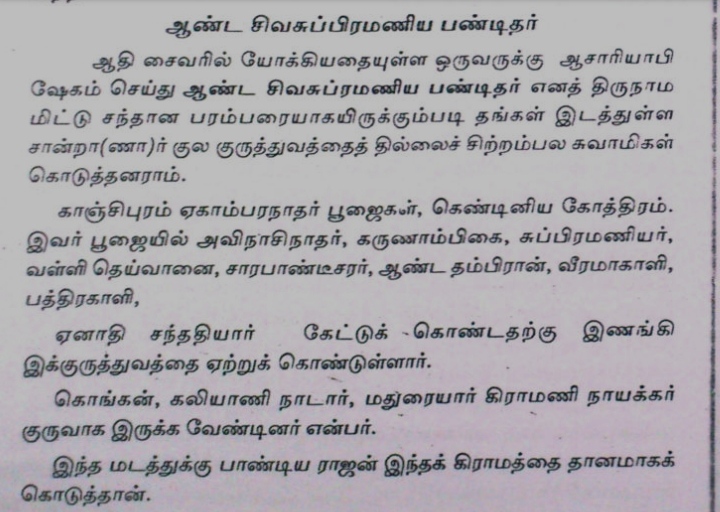 ஆண்ட சிவசுப்பிரமணிய பண்டிதர்
ஆதி சைவரில் யோக்கியதையுள்ள ஒருவருக்கு ஆசாரியாபி
ஷேகம் செய்து ஆண்ட சிவசுப்ரமணிய பண்டிதர் எனத் திருநாம
மிட்டு சந்தான பரம்பரையாகயிருக்கும்படி தங்கள் இடத்துள்ள
சான்றா(ணா)ர் குல குருத்துவத்தைத் தில்லைச் சிற்றம்பல சுவாமிகள்
கொடுத்தனராம்.
காஞ்சிபுரம் ஏகாம்பரநாதர் பூஜைகள், கெண்டினிய கோத்திரம்.
இவர் பூஜையில் அவிநாசிநாதர், கருணாம்பிகை, சுப்பிரமணியர்,
வள்ளி தெய்வானை, சாரபாண்டீசரர், ஆண்ட தம்பிரான், வீரமாகாளி,
பத்திரகாளி,
ஏனாதி சந்ததியார் கேட்டுக் கொண்டதற்கு இணங்கி
இக்குருத்துவத்தை ஏற்றுக் கொண்டுள்ளார்.
கொங்கன், கலியாணி நாடார், மதுரையார் கிராமணி நாயக்கர்
குருவாக இருக்க வேண்டினர் என்பர்.
இந்த மடத்துக்கு பாண்டிய ராஜன் இந்தக் கிராமத்தை தானமாகக்
கொடுத்தான்.